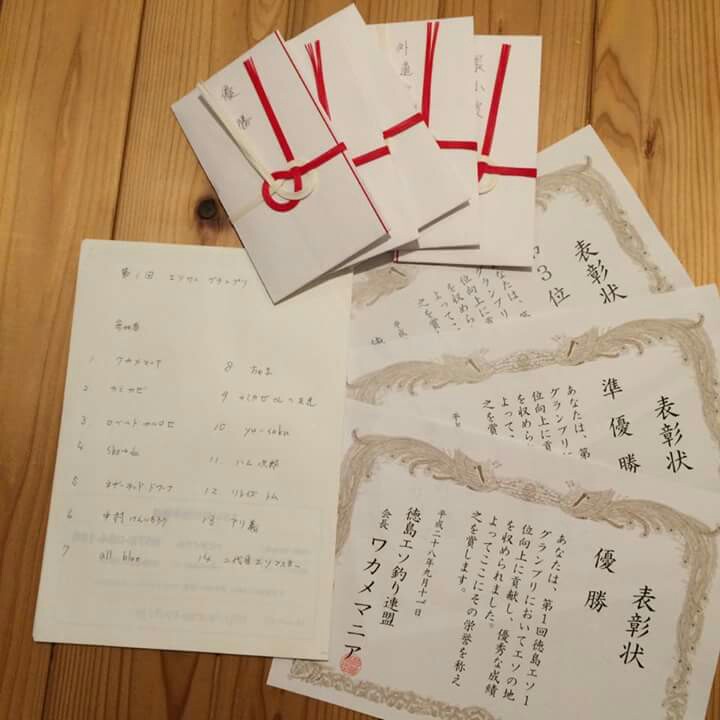 優勝
外道
第1回 エソワン グランプリ
参加者
1 ワカメマニア
2 カミカゼ
3
4
5
6 中村けんいちろう
7 all blue
8
9 カミカゼさんの友達
10 yu-saku
11 ハム次郎
12 トム
13
14 二代目エソマスター
表彰状
3位
あなたは、
グランプリ
位向上に
を収めら
よってこ
之を賞
平成
表彰状
準優勝
あなたは、第
グランプリ
位向上に
を収められ
よってこ
之を賞
表彰状
優勝
あなたは、第1回徳島エソ1
グランプリにおいてエソの地
位向上に貢献し、優秀な成績
を収められました。
よってここにその栄誉を称え
之を賞します。
平成二十八年九月十一日
徳島エソ釣り連盟
会長 ワカメマニア